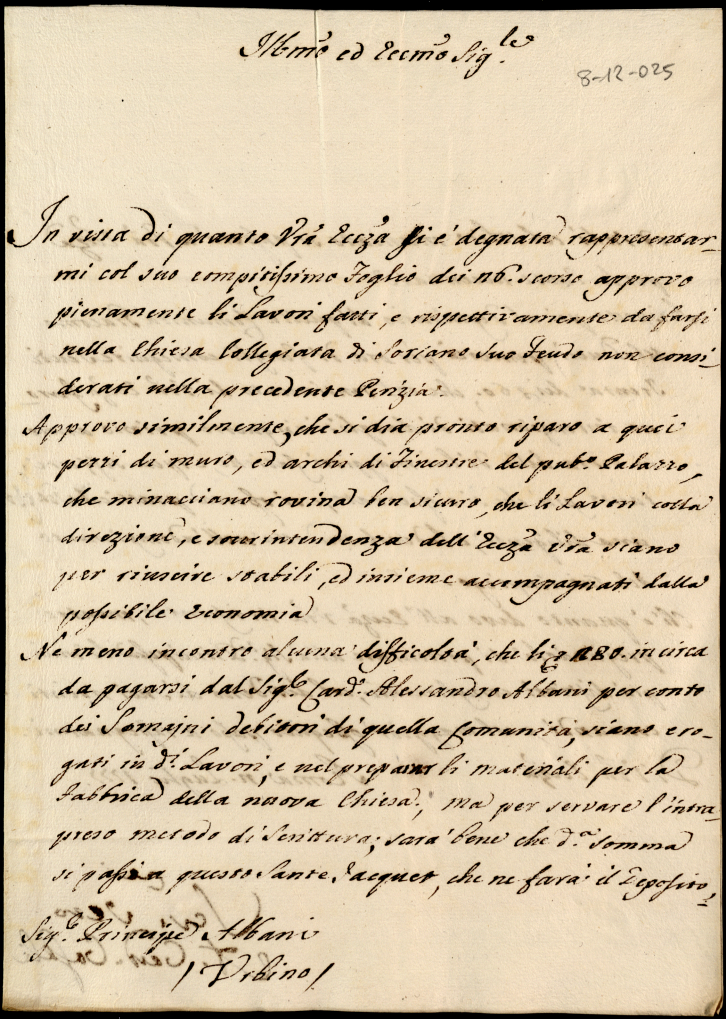 Illmo ed Eccmo Sig.le
8-12-025
In vista di quanto Vra Eccza si è degnata rappresentar-
mi col suo compitissimo Foglio dei 16. scorso approvo
pienamente li Lavori fatti, e rispettivamente da farsi
nella Chiesa Collegiata di Soriano suo Feudo non consi-
derati nella precedente Perizia.
Approvo similmente, che si dia pronto riparo a quei
pezzi di muro, ed archi di Finestre del pub.o Palazzo,
che minacciano rovina ben sicuro, che li Lavori colla
direzione, e sourintendenza dell'Eccza Vra siano
per riuscire stabili, ed insieme accompagnati dalla
possibile Economia
Ne meno incontro alcuna difficoltà, che li 180. in circa
da pagarsi dal Sig.e Card.l Alessandro Albani per conto
dei Somajni debitori di quella Comunità, siano ero-
gati in d.i Lavori, e nel preparar li materiali per la
Fabbrica della nuova Chiesa, ma per servare l'intra-
preso metodo di Scrittura, sarà bene che d.a somma
si passi a questo Sante Jacquet, che ne farà il Deposito,
Sig.e Principe Albani
/ Urbino /